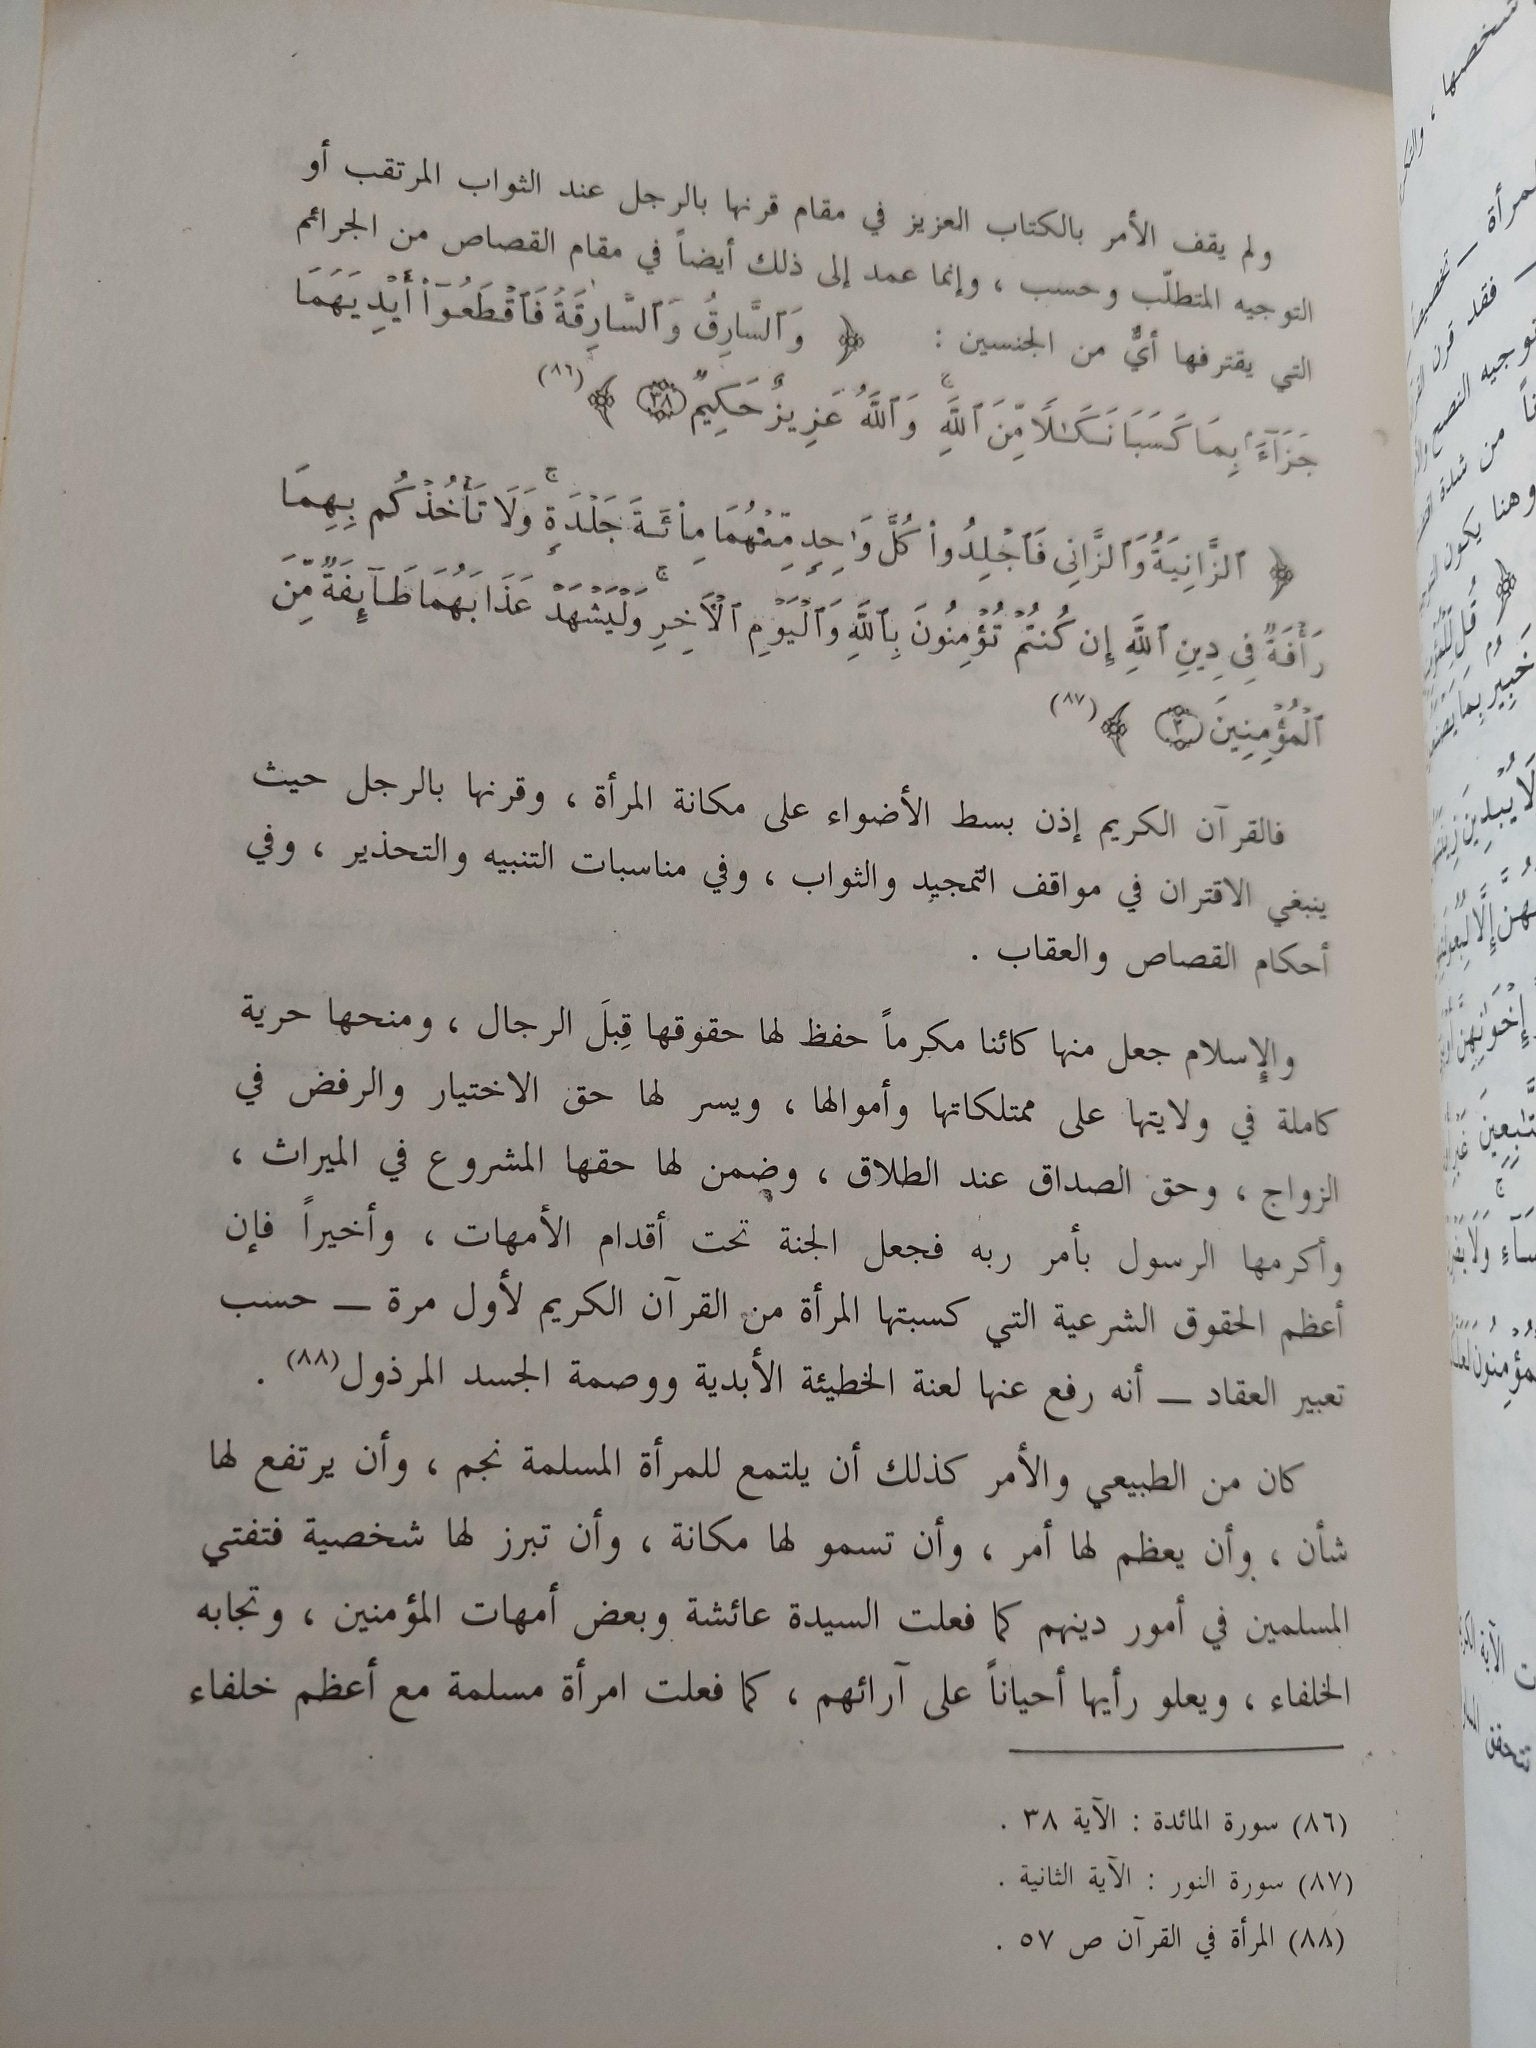 ولم يقف الأمر بالكتاب العزيز في مقام قرنها بالرجل عند الثواب المرتقب أو
التوجيه المتطلّب وحسب ، وإنما عمد إلى ذلك أيضاً في مقام القصاص من الجرائم
التي يقترفها أيٌّ من الجنسين : ﴿ وَٱلسَّارِقُ وَٱلسَّارِقَةُ فَٱقْطَعُوٓا۟ أَيْدِيَهُمَا
جَزَآءًۢ بِمَا كَسَبَا نَكَٰلًا مِّنَ ٱللَّهِ ۗ وَٱللَّهُ عَزِيزٌ حَكِيمٌ ٣٨ ﴾ (٨٦)
﴿ ٱلزَّانِيَةُ وَٱلزَّانِى فَٱجْلِدُوا۟ كُلَّ وَٰحِدٍ مِّنْهُمَا مِا۟ئَةَ جَلْدَةٍ ۖ وَلَا تَأْخُذْكُم بِهِمَا
رَأْفَةٌ فِى دِينِ ٱللَّهِ إِن كُنتُمْ تُؤْمِنُونَ بِٱللَّهِ وَٱلْيَوْمِ ٱلْءَاخِرِ ۖ وَلْيَشْهَدْ عَذَابَهُمَا طَآئِفَةٌ مِّنَ
ٱلْمُؤْمِنِينَ ٢ ﴾ (٨٧)
فالقرآن الكريم إذن بسط الأضواء على مكانة المرأة ، وقرنها بالرجل حيث
ينبغي الاقتران في مواقف التمجيد والثواب ، وفي مناسبات التنبيه والتحذير ، وفي
أحكام القصاص والعقاب .
والإسلام جعل منها كائنا مكرماً حفظ لها حقوقها قِبلَ الرجال ، ومنحها حرية
كاملة في ولايتها على ممتلكاتها وأموالها ، ويسر لها حق الاختيار والرفض في
الزواج ، وحق الصداق عند الطلاق ، وضمن لها حقها المشروع في الميراث ،
وأكرمها الرسول بأمر ربه فجعل الجنة تحت أقدام الأمهات ، وأخيراً فإن
أعظم الحقوق الشرعية التي كسبتها المرأة من القرآن الكريم لأول مرة — حسب
تعبير العقاد — أنه رفع عنها لعنة الخطيئة الأبدية ووصمة الجسد المرذول(٨٨) .
كان من الطبيعي والأمر كذلك أن يلتمع للمرأة المسلمة نجم ، وأن يرتفع لها
شأن ، وأن يعظم لها أمر ، وأن تسمو لها مكانة ، وأن تبرز لها شخصية فتفتي
المسلمين في أمور دينهم كما فعلت السيدة عائشة وبعض أمهات المؤمنين ، وتجابه
الخلفاء ، ويعلو رأيها أحياناً على آرائهم ، كما فعلت امرأة مسلمة مع أعظم خلفاء
(٨٦) سورة المائدة : الآية ٣٨ .
(٨٧) سورة النور : الآية الثانية .
(٨٨) المرأة في القرآن ص ٥٧ .